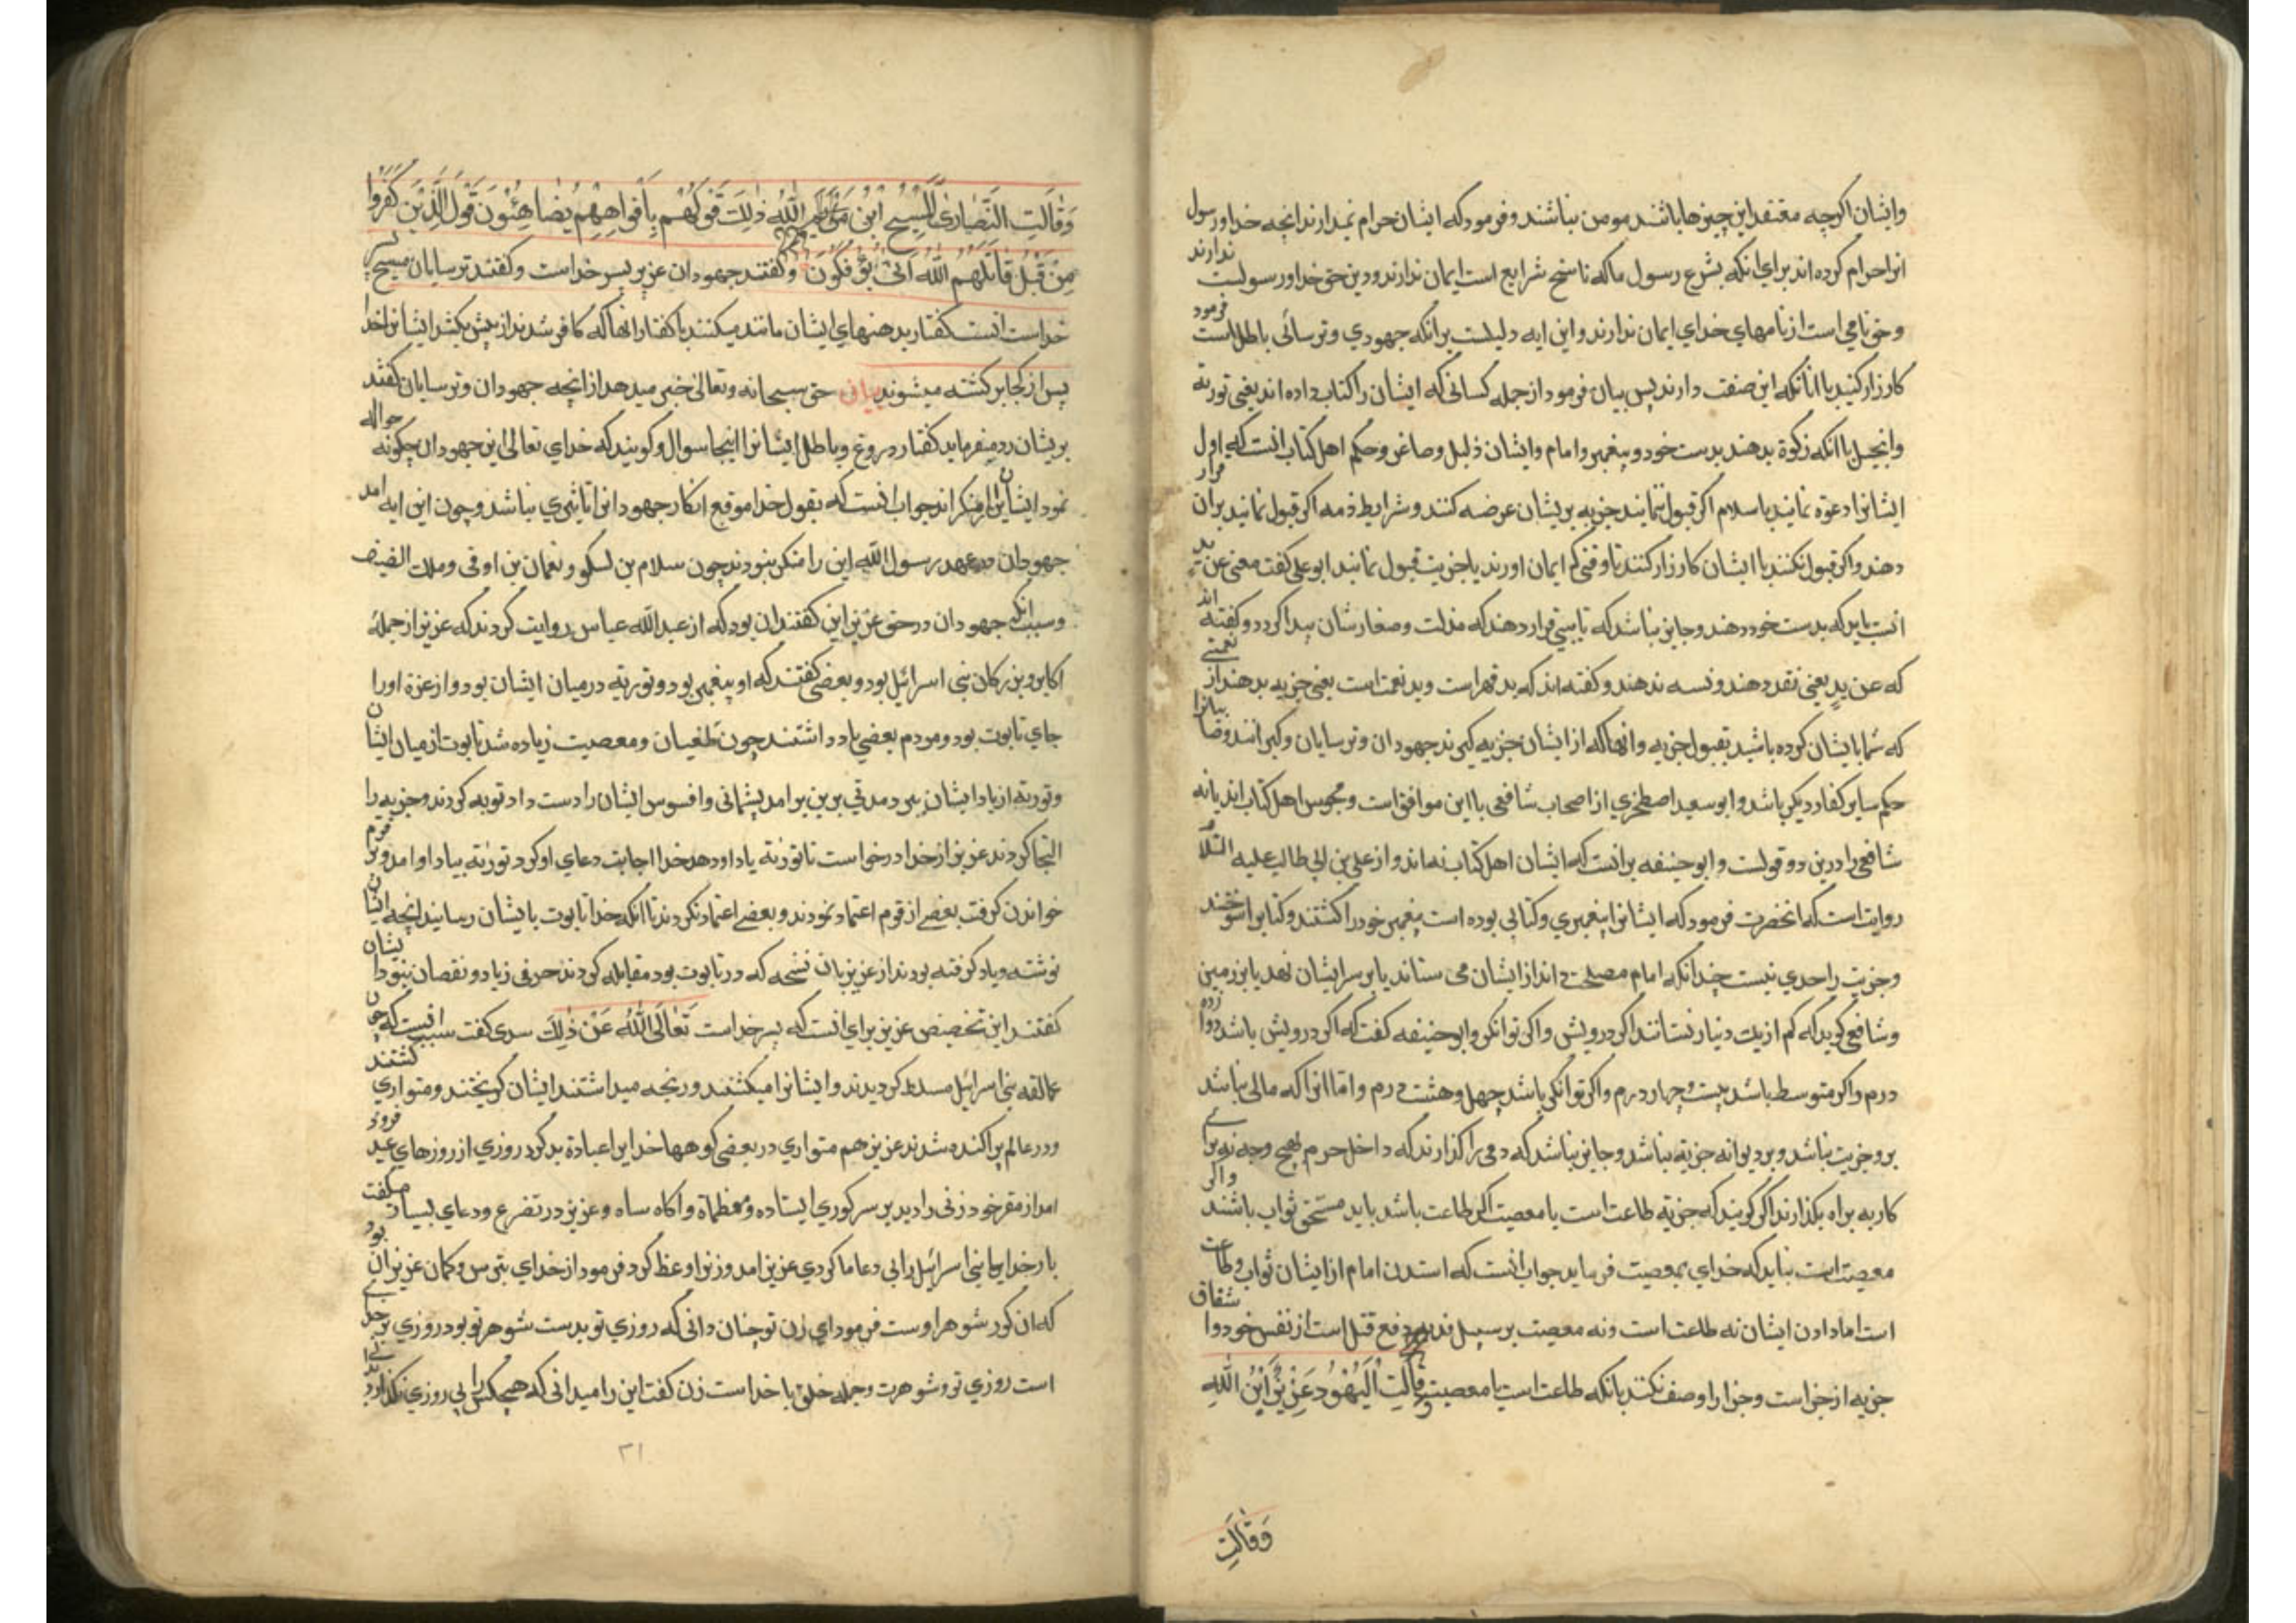 وایشان اکرچه معتقد این چیزها باشند مومن نباشند وفرمود که ایشان حرام نمیدارند انچه خدا ورسول
انرا حرام کرده اند برای انکه بشرع رسول ما که ناسخ شرایع است ایمان ندارند ودین حق خدا ورسولست ندارند
وحق نامی است از نامهای خدای ایمان ندارند واین ایه دلیلست برانکه جهودی وترسائی باطل است فرمود
کارزار کنید با انانکه این صفت دارند پس بیان فرمود از جمله کسانی که ایشان را کتاب داده اند یعنی توریة
وانجیل با انکه زکوة بدهند بدست خود وپیغمبر وامام وایشان ذلیل وصاغر وحکم اهل کتاب انست که اول
ایشانرا دعوة نمایند باسلام اکر قبول ننمایند جزیه بریشان عرضه کنند وشرایط ذمه اکر قبول نمایند بران قرار
دهند واکر قبول نکنند با ایشان کارزار کنند تا وقتی که ایمان اورند یا بجزیت قبول نمایند ابوعلی کفت معنی عن ید
انست باید که بدست خود دهند وجایز نباشد که نایبی قرار دهند که مذلت وصغارشان پیدا کردد وکفته اند
که عن ید یعنی نقد دهند ونسه ندهند وکفته اند که ید قهر است وید نعمت است یعنی جزیه بدهند از نعمتی
که شما با ایشان کرده باشید بقبول جزیه وانها که از ایشان جزیه کیرند جهودان وترسایان وکبرانند وصابیانرا
حکم سایر کفار دیکر باشد وابو سعید اصطخری از اصحاب شافعی با این موافق است ومجوس اهل کتاب اند یا نه
شافعی را درین دو قولست وابو حنیفه برانست که ایشان اهل کتاب نه اند واز علی بن ابی طالب علیه السلام
روایت است که انحضرت فرمود که ایشانرا پیغمبری وکتابی بوده است پیغمبر خود را کشتند وکتابرا سوختند
وجزیت را حدی نیست چندانکه امام مصلحت داند از ایشان می ستاند یا بر سر ایشان نهد یا بر زمین
وشافعی کوید که کم از یک دینار نستانند اکر درویش واکر توانکر وابو حنیفه کفت که اکر درویش باشد دوازده
درم واکر متوسط باشد بیست وچهار درم واکر توانکر باشد چهل وهشت درم واما انرا که مالی نباشد
برو جزیت نباشد وبر دیوانه جزیه نباشد وجایز نباشد که ذمی را کذارند که داخل حرم بهیچ وجه نه برای
کار به براه بکذارند اکر کویند که جزیه طاعت است یا معصیت اکر طاعت باشد باید مستحق ثواب باشند واکر
معصیت است نباید که خدای بمعصیت فرماید جواب انست که استدن امام از ایشان ثواب وطاعت
است اما دادن ایشان نه طاعت است ونه معصیت بر سبیل فدیه دفع قتل است از نفس خود واشتقاق
جزیه از جزاست وجزا را وصف نکنند بانکه طاعت است یا معصیت وَقَالَتِ الْیَهُودُ عُزَیْرٌ ابْنُ اللهِ
وَقَالَتِ
وَقَالَتِ النَّصَارَىٰ الْمَسِیحُ ابْنُ اللهِ ذٰلِكَ قَوْلُهُمْ بِأَفْوَاهِهِمْ یُضَاهِئُونَ قَوْلَ الَّذِینَ كَفَرُوا
مِنْ قَبْلُ قَاتَلَهُمُ اللهُ أَنَّىٰ یُؤْفَكُونَ وکفتند جهودان عزیر پسر خداست وکفتند ترسایان مسیح پسر
خداست انست کفتار بدهنهای ایشان مانند میکنند با کفتار انها که کافر شدند از پیش بکشد ایشانرا خدا
پس از کجا برکشته میشوند بیان حق سبحانه وتعالی خبر میدهد از انچه جهودان وترسایان کفتند
بریشان رد میفرماید کفتار دروغ وباطل ایشانرا اینجا سوال وکویند که خدای تعالی این جهودان چکونه حواله
نمود ایشان ازین منکر اند جواب انست که بقول خدا موقع انکار جهودانرا تاثیری نباشد وچون این ایه امد
جهودان در عهد رسول الله این را منکر نبودند چون سلام بن ونعمان بن اوفی ومالک الضیف
وسبب انکه جهودان در حق عزیر این کفتند ان بود که از عبد الله عباس روایت کردند که عزیر از جملهٔ
اکابر وبزرکان بنی اسرائیل بود وبعضی کفتند که او پیغمبر بود وتوریة درمیان ایشان بود واز عزة اورا
جای تابوت بود ومردم بعضی یاد داشتند چون طغیان ومعصیت زیاده شد تابوت از میان ایشان
وتوریة از یاد ایشان ببرد مدتی برین برامد پشمانی وافسوس ایشان را دست داد توبه کردند وجزیه را
التجا کردند عزیر از خدا درخواست تا توریة یاد او دهد خدا اجابت دعای او کرد توریة بیاد او امد وبر قوم
خواندن کرفت بعضی از قوم اعتماد نمودند وبعضی اعتماد نکردند تا انکه خدا تابوت با یشان رسانید انچه ایشان
نوشته ویاد کرفته بودند از عزیر بان نسخه که در تابوت بود مقابله کردند حرفی زیاد ونقصان نبود ایشان
کفتند این تخصیص عزیر برای انست که پسر خداست تَعَالَى اللهُ عَنْ ذٰلِكَ سدی کفت سبب انست که چون
عمالقه بنی اسرائیل مسلط کردیدند وایشانرا میکشتند ورنجه میداشتند ایشان کریختند ومتواری کشتند
ودر عالم پراکنده شدند عزیر هم متواری در بعضی کوهها خدایرا عبادة بدکرد روزی از روزهای عید فرود
امد از مقر خود زنی را دید بر سر کوری ایستاده وعزیز در تضرع ودعای بسیار میکفت
بار خدایا بنی اسرائیل را بی دعا ما کردی عزیر امد وزنرا وعظ کرد فرمود از خدای بترس وکمان عزیر ان بود
که ان کور شوهر اوست فرمود ای زن تو چنان دانی که روزی تو بدست شوهر تو بود روزی بر خدای
است روزی تو وشوهرت وجمله خلق با خداست زن کفت این را میدانی که هیچکس را بی روزی نکذارد
۳۱